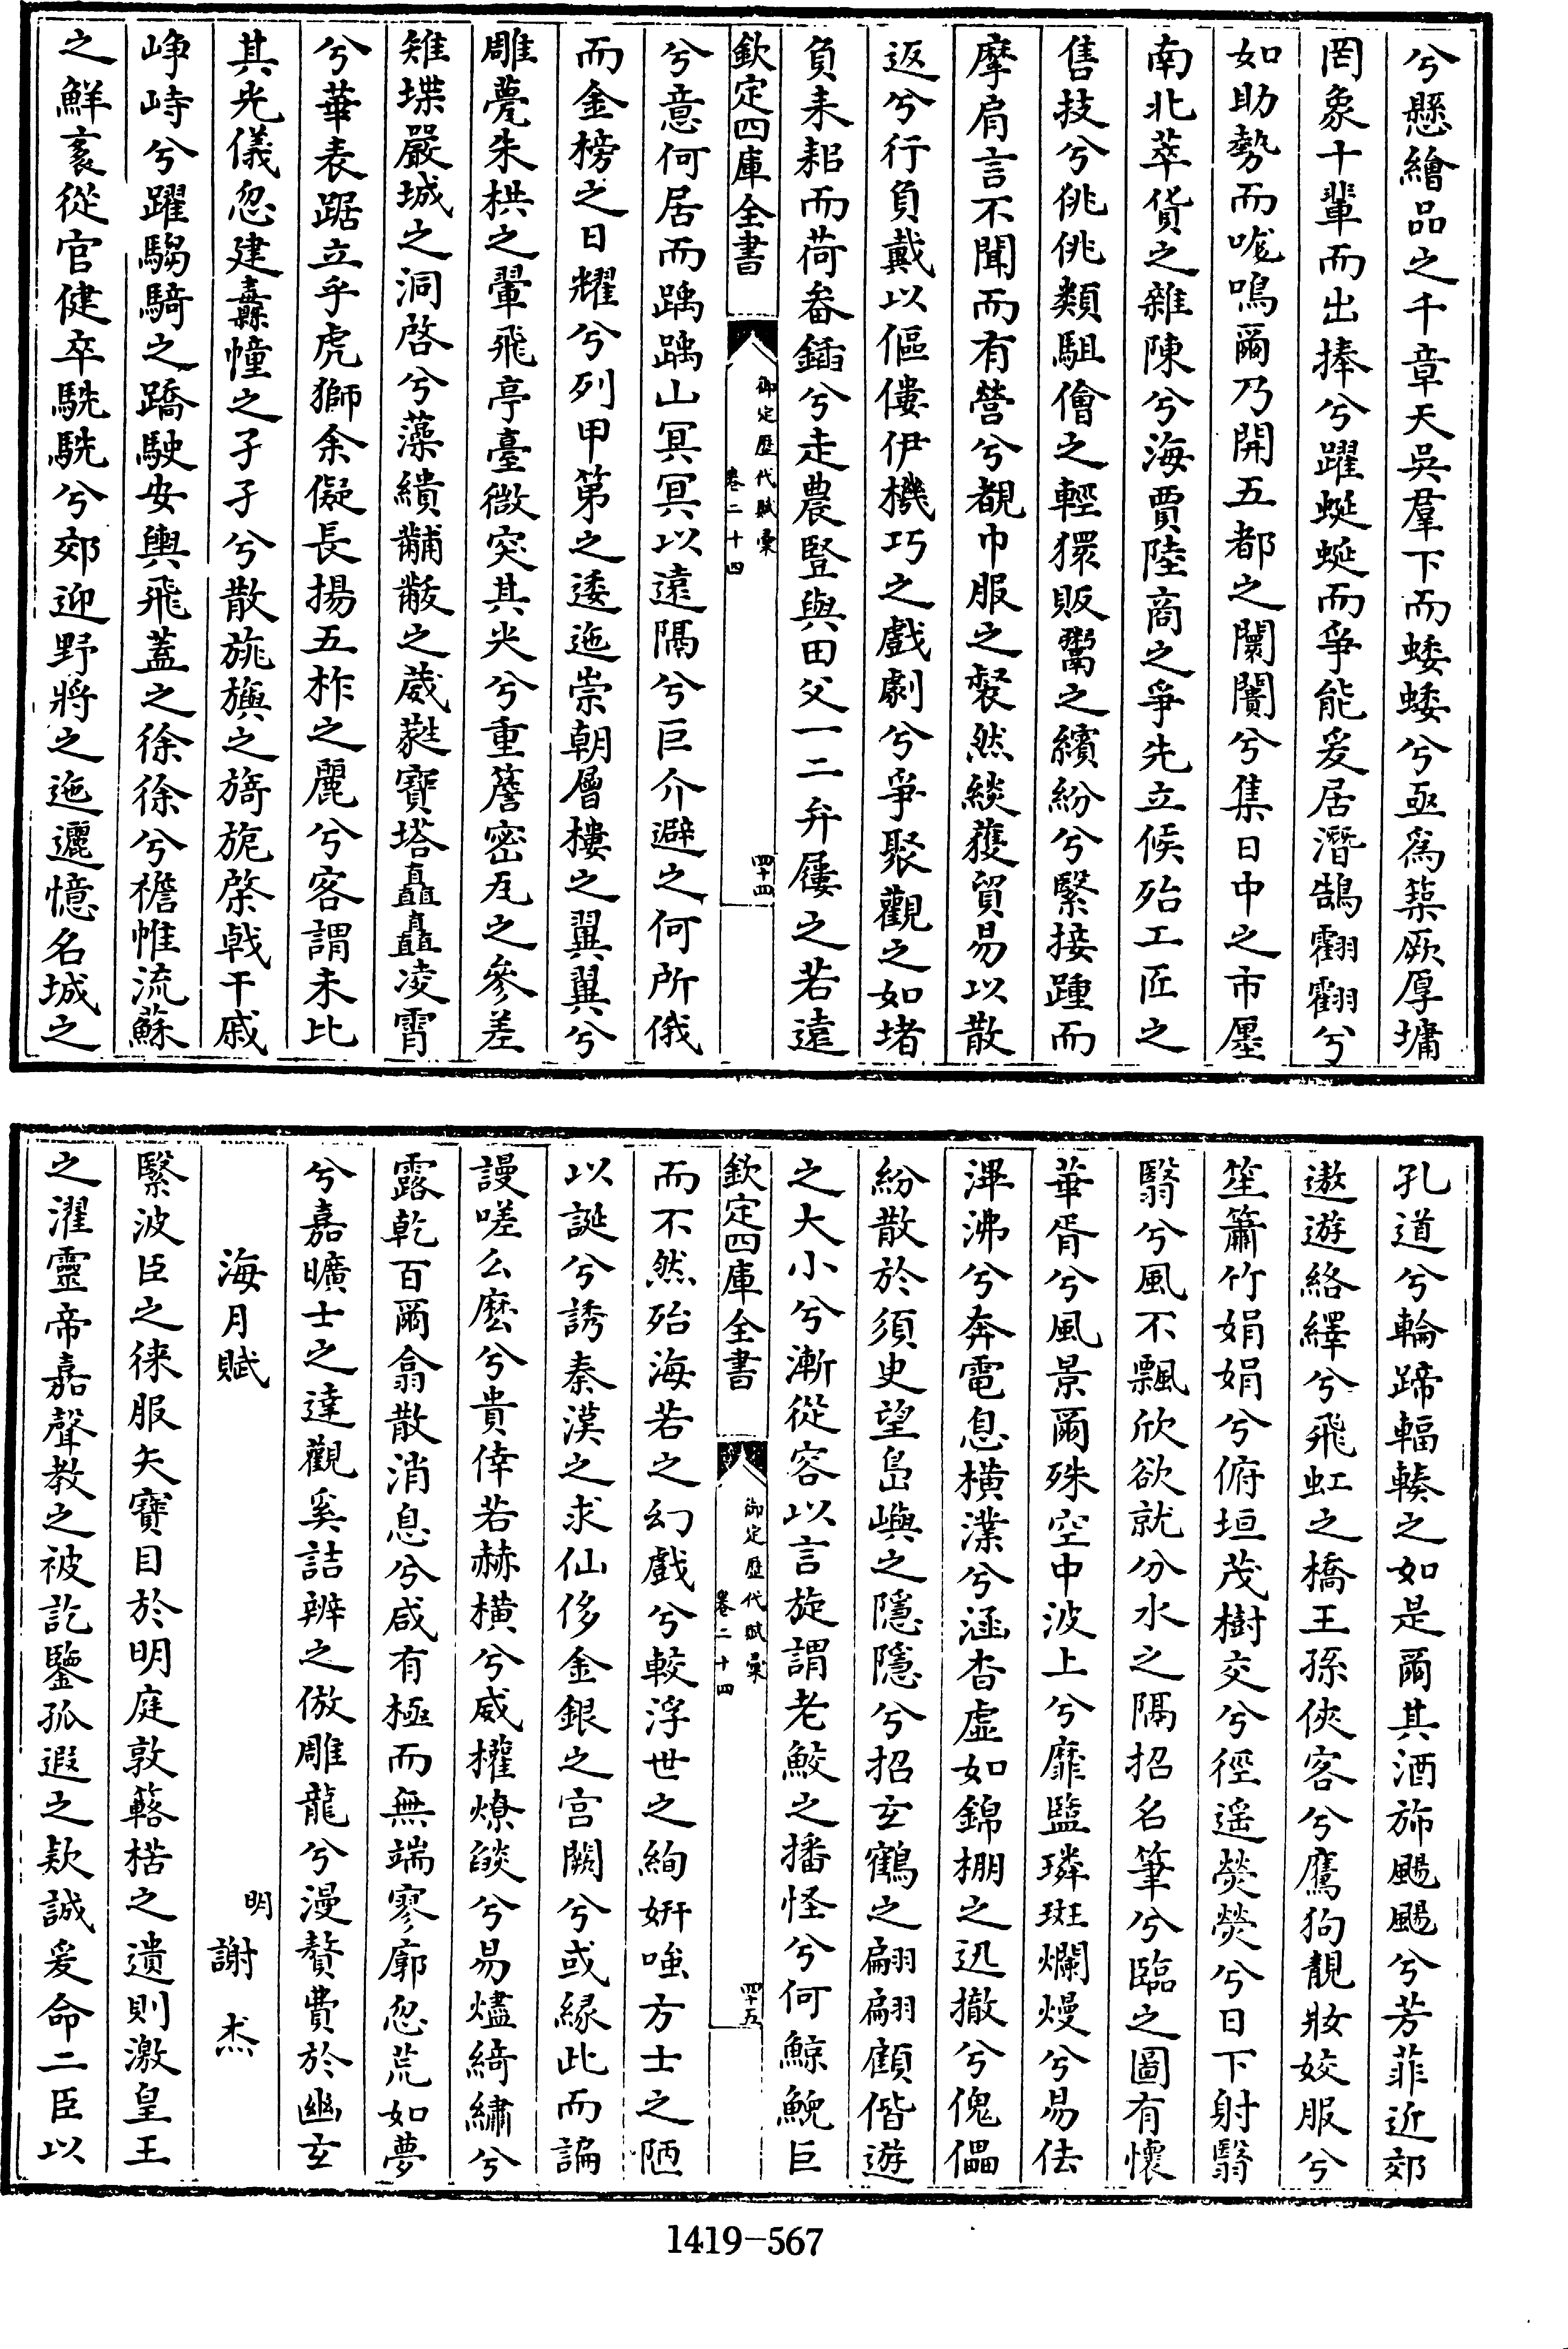 兮懸繪品之千章天吳羣下而蜲蜲兮亟為築厥厚墉
罔象十輩而出捧兮躍蜒蜒而爭能爰居潛鵠翻翻兮
如助勢而嚨鳴爾乃開五都之闤闠兮集日中之市廛
南北萃貨之雜陳兮海賈陸商之爭先立候殆工匠之
售技兮佻佻類駔儈之輕獧販鬻之繽紛兮緊接踵而
摩肩言不聞而有營兮覩巾服之褧然緂蔉貿易以散
返兮行負戴以傴僂伊機巧之戲劇兮爭聚觀之如堵
負耒耜而荷畚鍤兮走農豎與田父一二弁屨之若遠
欽定四庫全書
御定歷代賦彙
卷二十四
四十四
兮意何居而踽踽山冥冥以遠隔兮巨介避之何所俄
而金榜之日耀兮列甲第之逶迤崇朝層樓之翼翼兮
雕甍朱栱之翬飛亭臺微突其尖兮重簷密瓦之參差
雉堞嚴城之洞啓兮藻繢黼黻之葳蕤寶塔矗矗凌霄
兮華表踞立乎虎獅余儗長揚五柞之麗兮客謂未比
其光儀忽建纛幢之孑孑兮散旐旟之旖旎棨戟干戚
崢峙兮躍騶騎之蹻駛安輿飛蓋之徐徐兮襜帷流蘇
之鮮袤從官健卒駪駪兮郊迎野將之迤邐憶名城之
孔道兮輪蹄輻輳之如是爾其酒斾颺颺兮芳菲近郊
遨遊絡繹兮飛虹之橋王孫俠客兮鷹狗靚妝姣服兮
笙簫竹娟娟兮俯垣茂樹交兮徑遥熒熒兮日下射翳
翳兮風不飄欣欲就分水之隔招名筆兮臨之圖有懷
華胥兮風景爾殊空中波上兮靡監璘斑爛熳兮易佉
渾沸兮奔電息横濮兮涵杳虚如錦棚之迅撤兮傀儡
紛散於須史望島嶼之隱隱兮招玄鶴之翩翩顧偕遊
之大小兮漸從容以言旋謂老鮫之播怪兮何鯨鮸巨
欽定四庫全書
御定歷代賦彙
卷二十四
四十五
而不然殆海若之幻戲兮較浮世之絢妍嗤方士之陋
以誕兮誘秦漢之求仙侈金銀之宫闕兮或緣此而諞
謾嗟么麽兮貴倖若赫横兮威權燎燄兮易燼綺繡兮
露乾百爾翕散消息兮咸有極而無端寥廓忽荒如夢
兮嘉曠士之達觀奚詰辨之倣雕龍兮漫贅費於幽玄
海月賦
明
謝杰
繄波臣之徠服矢寶目於明庭敦簵楛之遺則激皇王
之濯靈帝嘉聲教之被訖鑒孤遐之欵誠爰命二臣以
1419-567